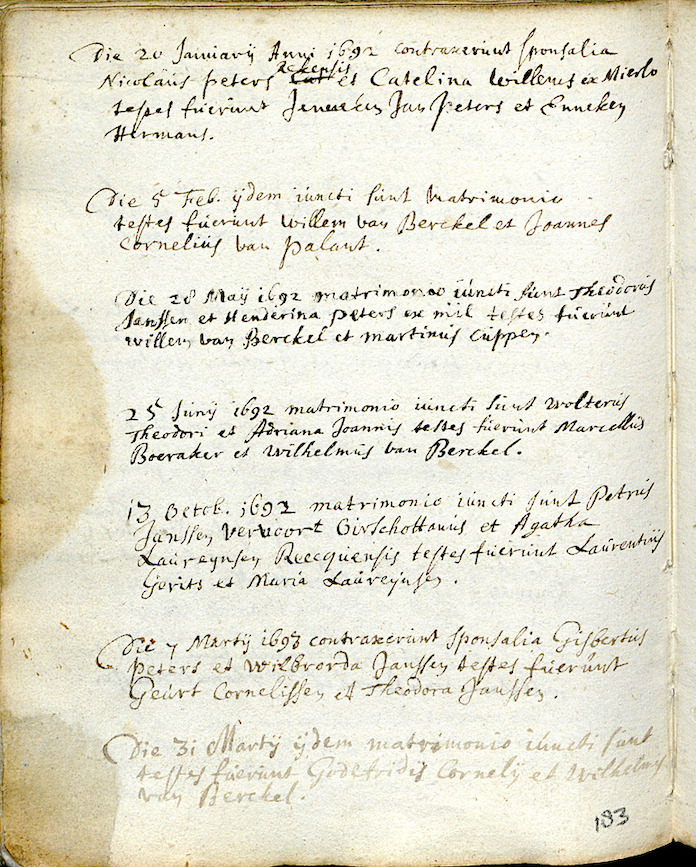 Die 20 Januarÿ Anni 1692 contraxerunt sponsalia
Reckensis
Nicolaus Peters et Catelina Willems ex Mierlo
testes fuerunt Jenneken Jan Peters et Enneken
Hermans.
Die 5 Feb. ÿdem iuncti sunt matrimonio
testes fuerunt Willem van Berckel et Joannes
Cornelius van Palant.
Die 28 Maÿ 1692 matrimonio iuncti sunt Theodorus
Janssen et Henderina Peters ex mil testes fuerunt
Willem van Berckel et martinus Cuppen.
25 Junÿ 1692 matrimonio iuncti sunt Wolterus
Theodori et Adriana Joannis testes fuerunt Marcellus
Boeraker et Wilhelmus van Berckel.
13 Octob. 1692 matrimonio iuncti sunt Petrus
Janssen Vervoort Oirschottanus et Agatha
Laureÿnsen Reecquensis testes fuerunt Laurentius
Gerits et Maria Laureÿnsen.
Die 7 Martÿ 1693 contraxerunt sponsalia Gisbertus
Peters et Wilbrorda Janssen testes fuerunt
Geurt Cornelissen et Theodora Janssen.
Die 31 Martÿ ÿdem matrimonio iuncti sunt
testes fuerunt Godefridis Cornelÿ et Wilhelmus
van Berckel.
183